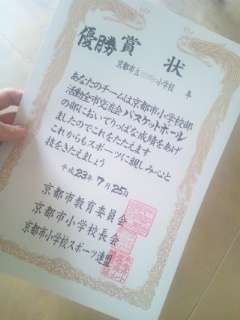 優勝賞状
京都市立 小学校
あなたのチームは京都市小学校部
活動全市交流会バスケットボール
の部においてりっぱな成績をあげ
ましたのでこれをたたえます
これからもスポーツに親しみ心と
技をきたえましょう
平成23年7月25日
京都市教育委員会
京都市小学校長会
京都市小学校スポーツ連盟